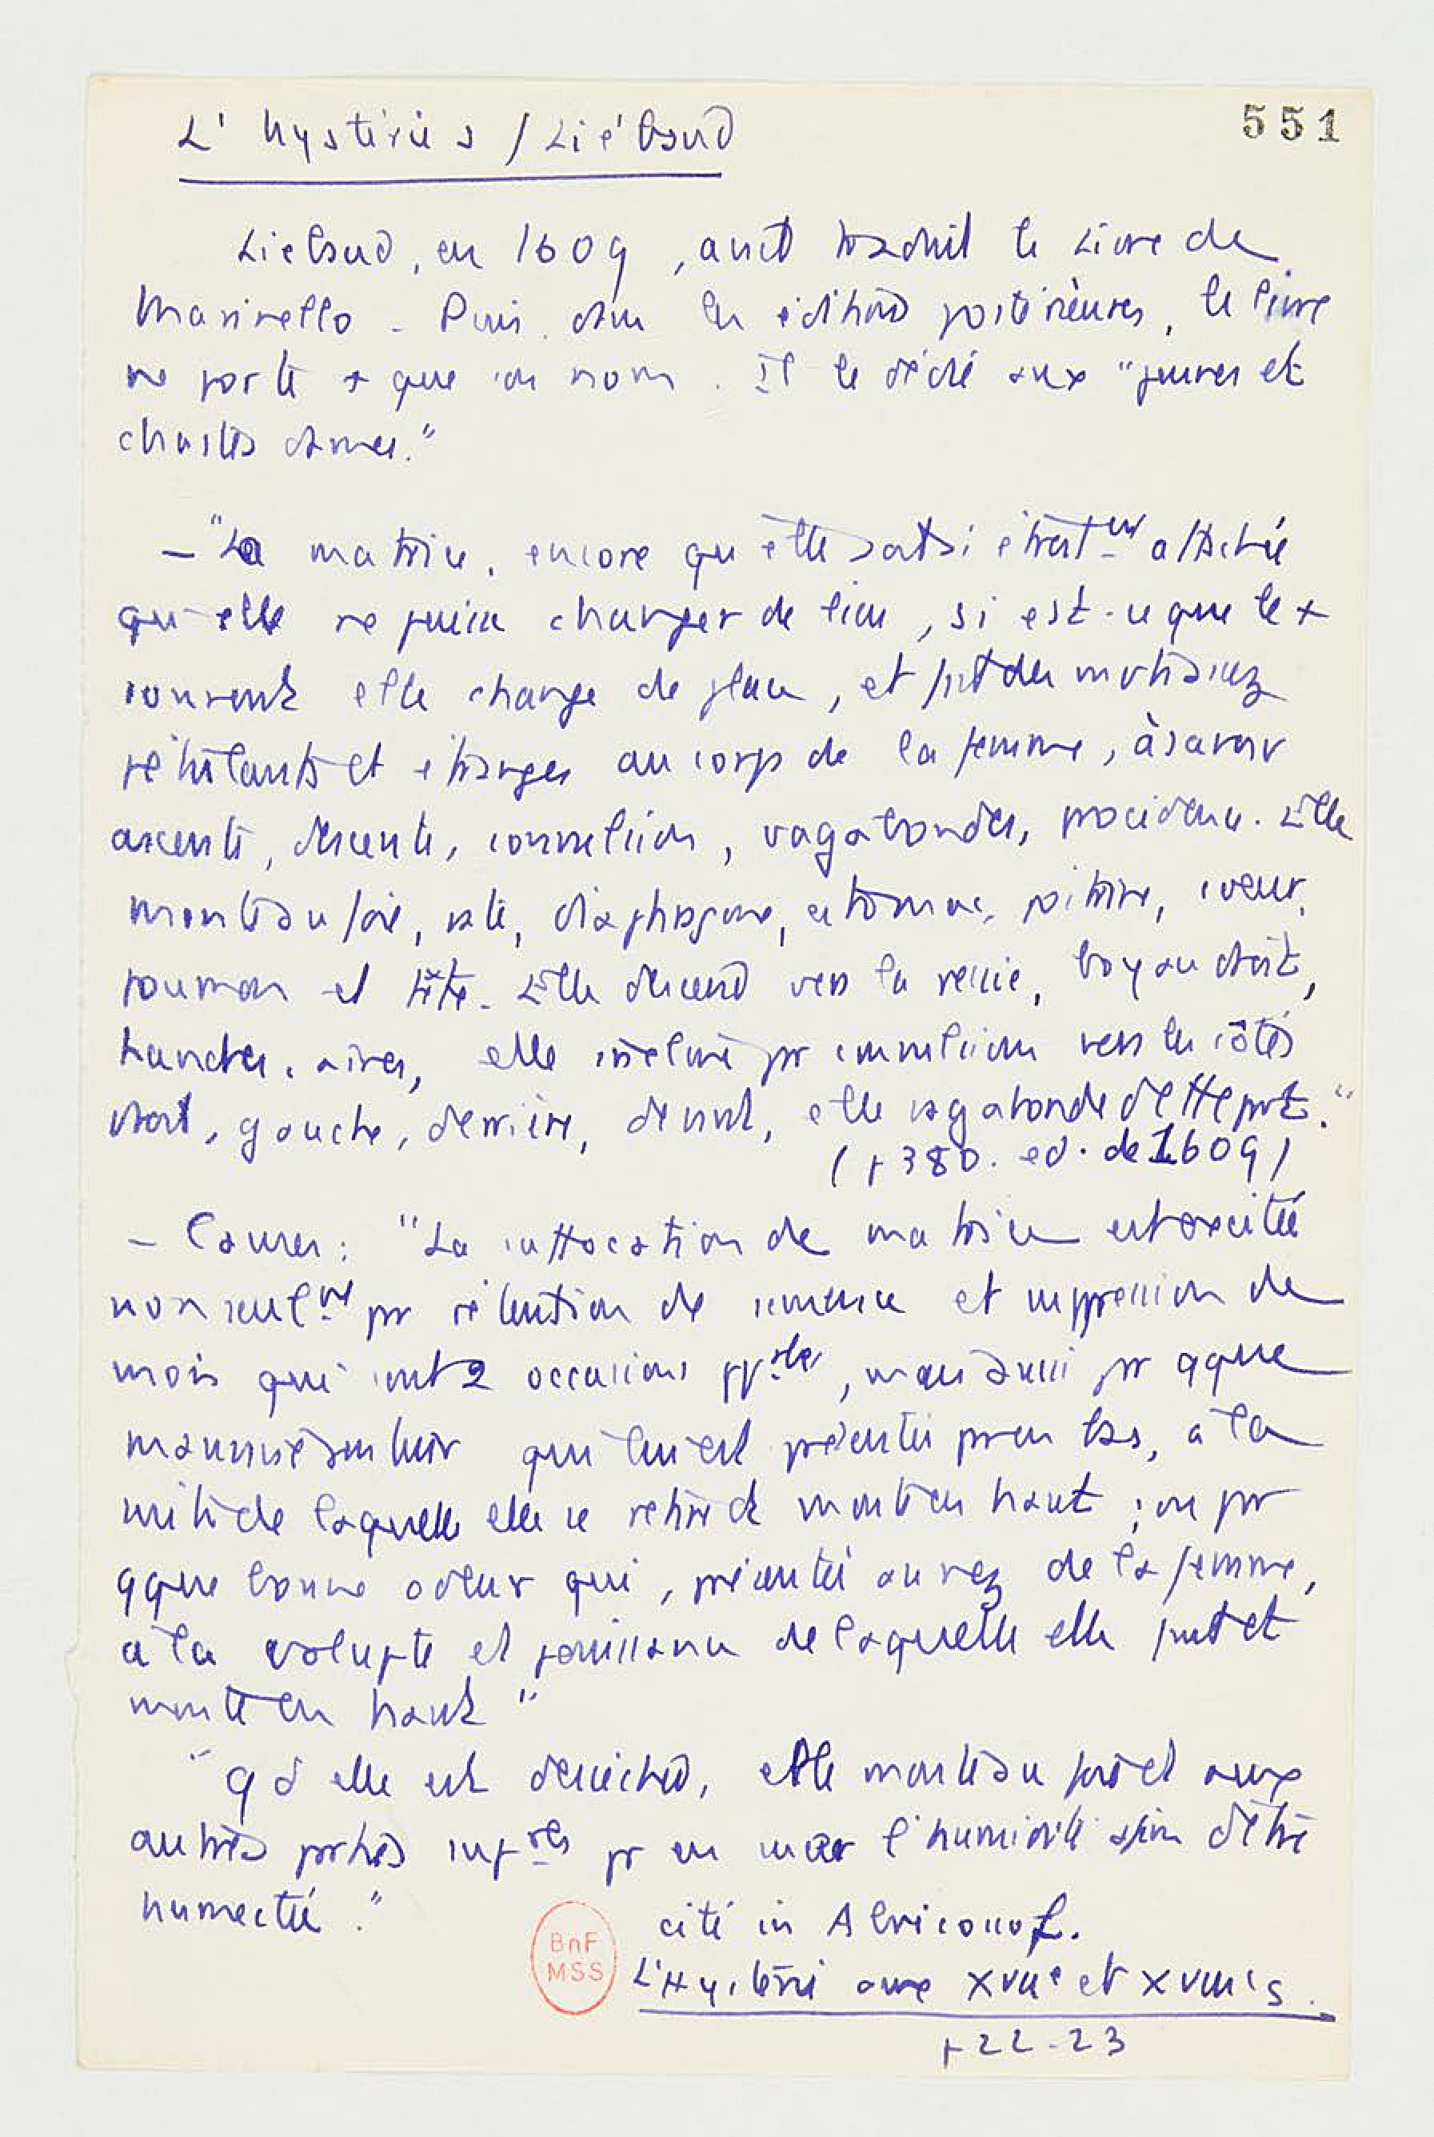 L'hystérie / Liébaud
551
Liebaud, en 1609, avait traduit le livre de
Marinello. Puis dans les éditions postérieures, le livre
ne porte + que son nom. Il le dédie aux "jeunes et
chastes dames."
- "La matrice, encore qu'elle soit si étroit^ent attachée
qu'elle ne puisse changer de lieu, si est-ce que le +
souvent elle change de place, et fait des mots assez
pétulants et étranges au corps de la femme, à savoir
ascente, descente, convulsion, vagabondes, procidence. Elle
monte au foie, rate, diaphragme, estomac, poitrine, coeur,
poumon et tête. Elle descend vers la vessie, boyau droit,
hanches, aines, elle incline pr convulsion vers les côtés
droit, gauche, derrière, devant, elle vagabonde de tte part."
(p 380. ed. de 1609)
- Causes : "La suffocation de matrice est excitée
non seul^nt pr rétention de semence et suppression de
mois qui sont 2 occasions pp^ales, mais aussi pr qque
mauvaise senteur qui lui est présentée par en bas, à la
suite de laquelle elle se retire et monte en haut ; ou pr
qque bonne odeur qui, présentée au nez de la femme,
à la volupté et jouissance de laquelle elle fuit et
monte en haut"
"Qd elle est desséchée, elle monte au foie et aux
autres parties sup^res pr en sucer l'humidité afin d'être
humectée."
cité in Abricossof.
L'Hystérie aux XVIIe et XVIIIe s.
p 22-23
BnF
MSS